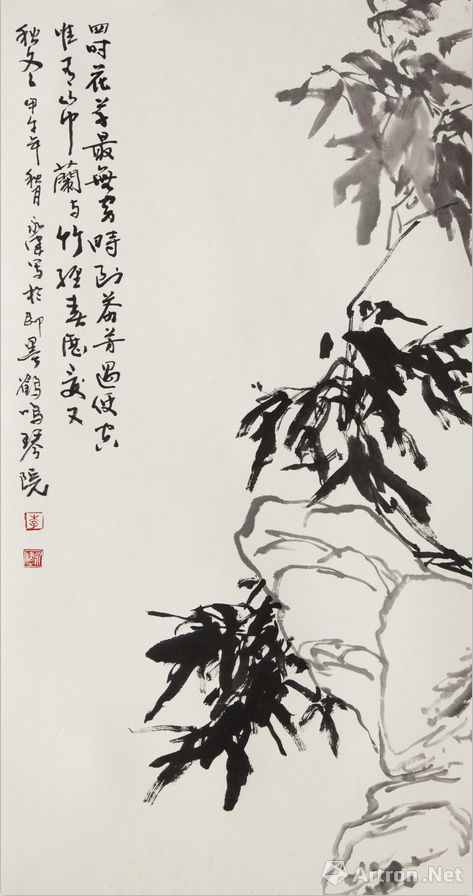 四时花草最无穷时到芬芳过便空
惟有山中兰与竹经春历夏又
秋冬 甲午年秋月 永津写于即墨鹤鸣琴院
李
Artron.Net